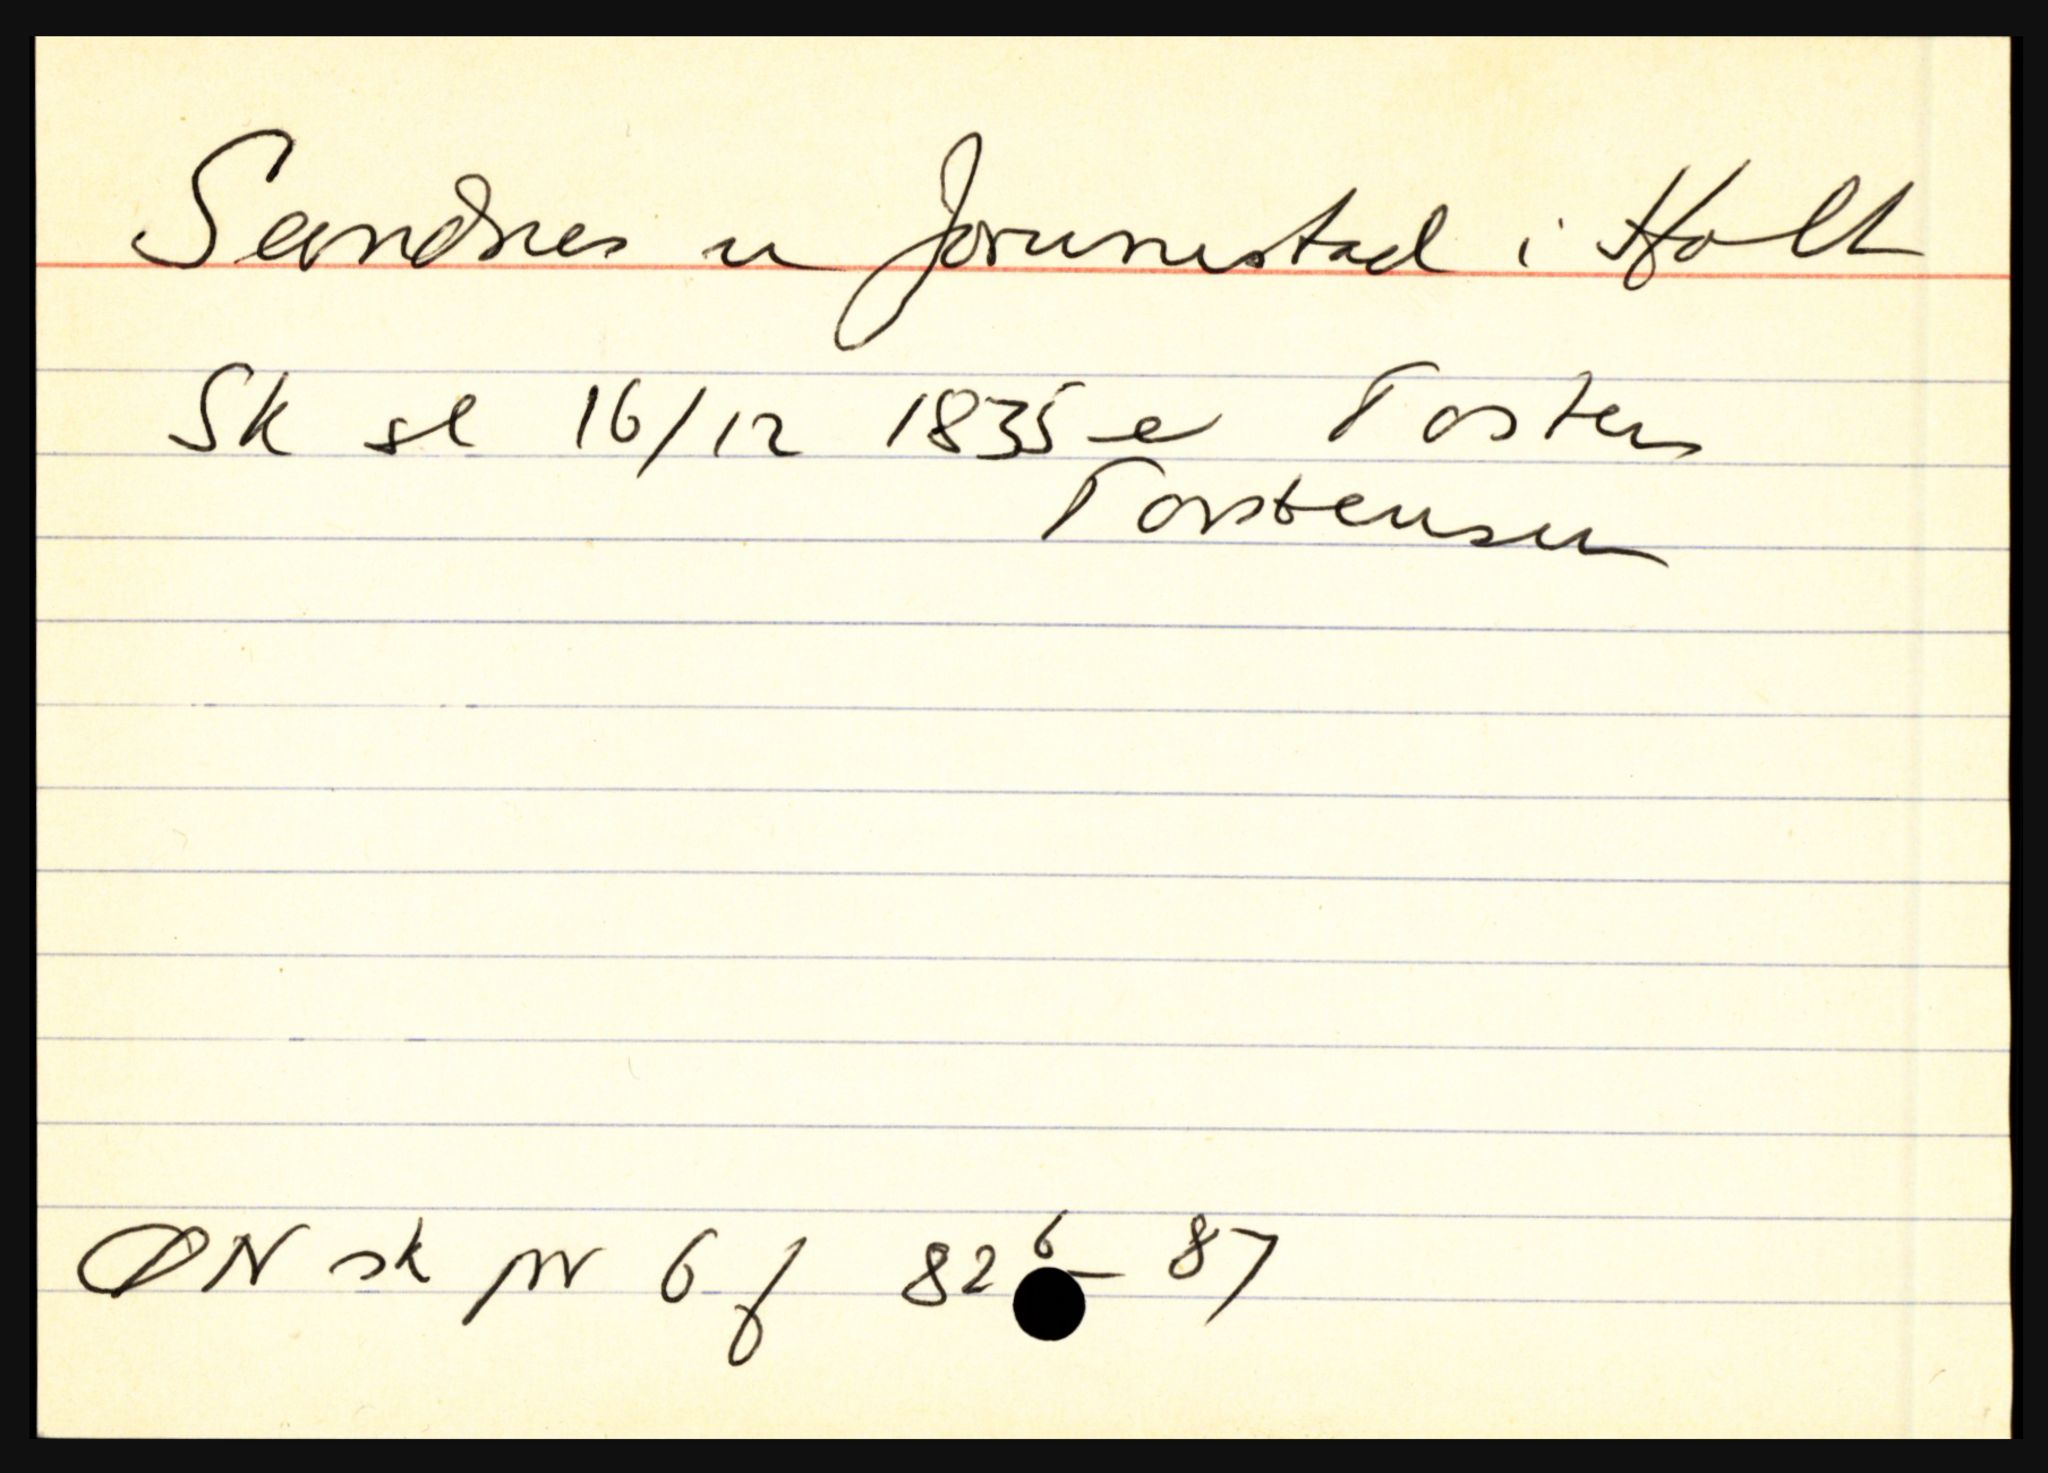 Sandnes u Jorunnstad i Holt
Sk sl 16/12 1835 e Tosten
Torstensen
ØN sk pr 6 f 82 6 - 87